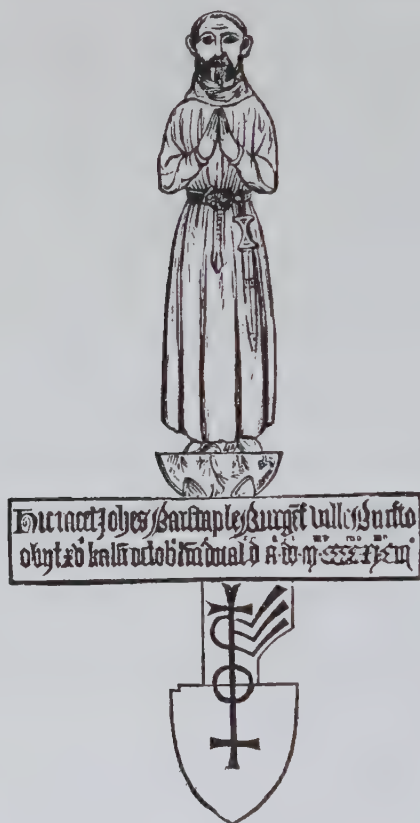 Hic iacet Johes Barstaple Burgeñ ville Bristo
obyt xv kaleñ octob' dñical' d a dō m cccc xi